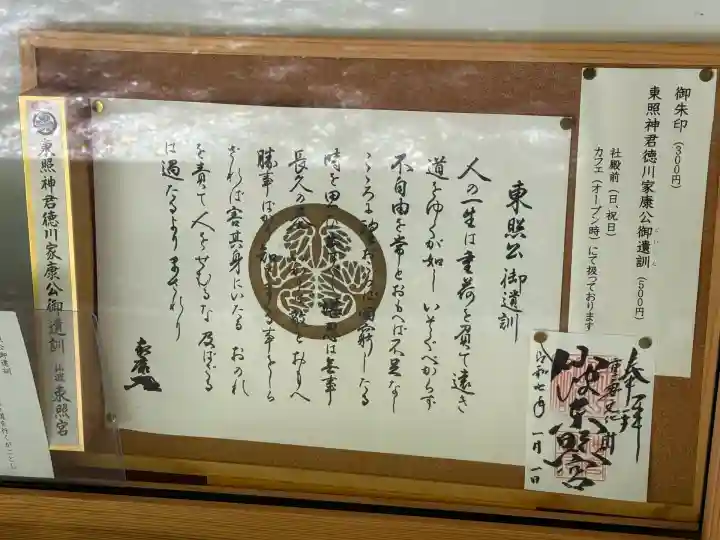 御朱印（300円）
東照神君徳川家康公御遺訓（500円）
社殿前（日、祝日）
カフェ（オープン時）にて扱っております
奉拝
重要文化財
仙波東照宮
令和七年一月一日
東照公御遺訓
人の一生は重荷を負て遠き
道をゆくが如し いそぐべからず
不自由を常とおもへば不足なし
こころに望おこらば困窮したる
時を思ひ出すべし 堪忍は無事
長久の基 いかりは敵とおもへ
勝事ばかり知てまくる事をしら
ざれば害其身にいたる おのれ
を責て人をせむるな 及ばざる
は過たるよりまされり
家康
東照神君徳川家康公御遺訓 仙波東照宮
公御遺訓
を行くがごとし